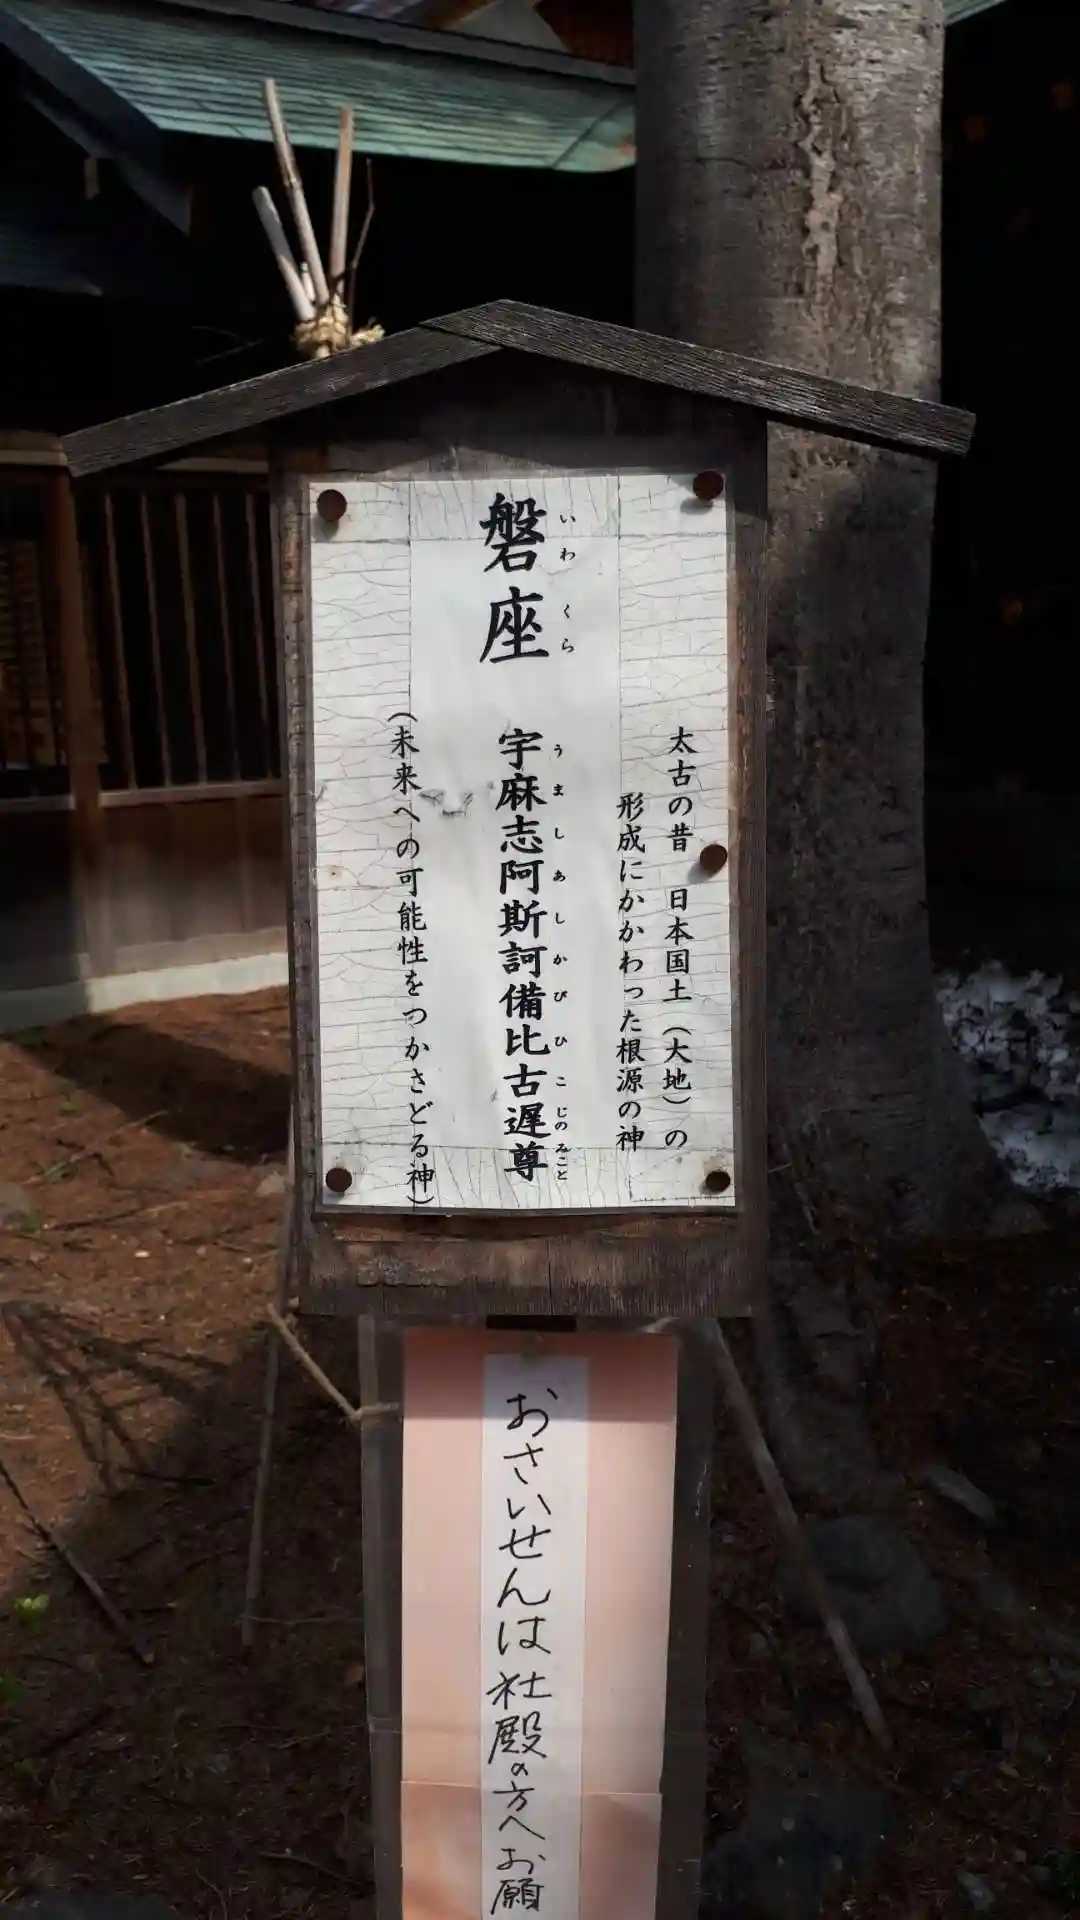 太古の昔 日本国土（大地）の
形成にかかわった根源の神
磐座 宇麻志阿斯訶備比古遅尊
いわくら うましあしかびひこじのみこと
（未来への可能性をつかさどる神）
おさいせんは社殿の方へお願